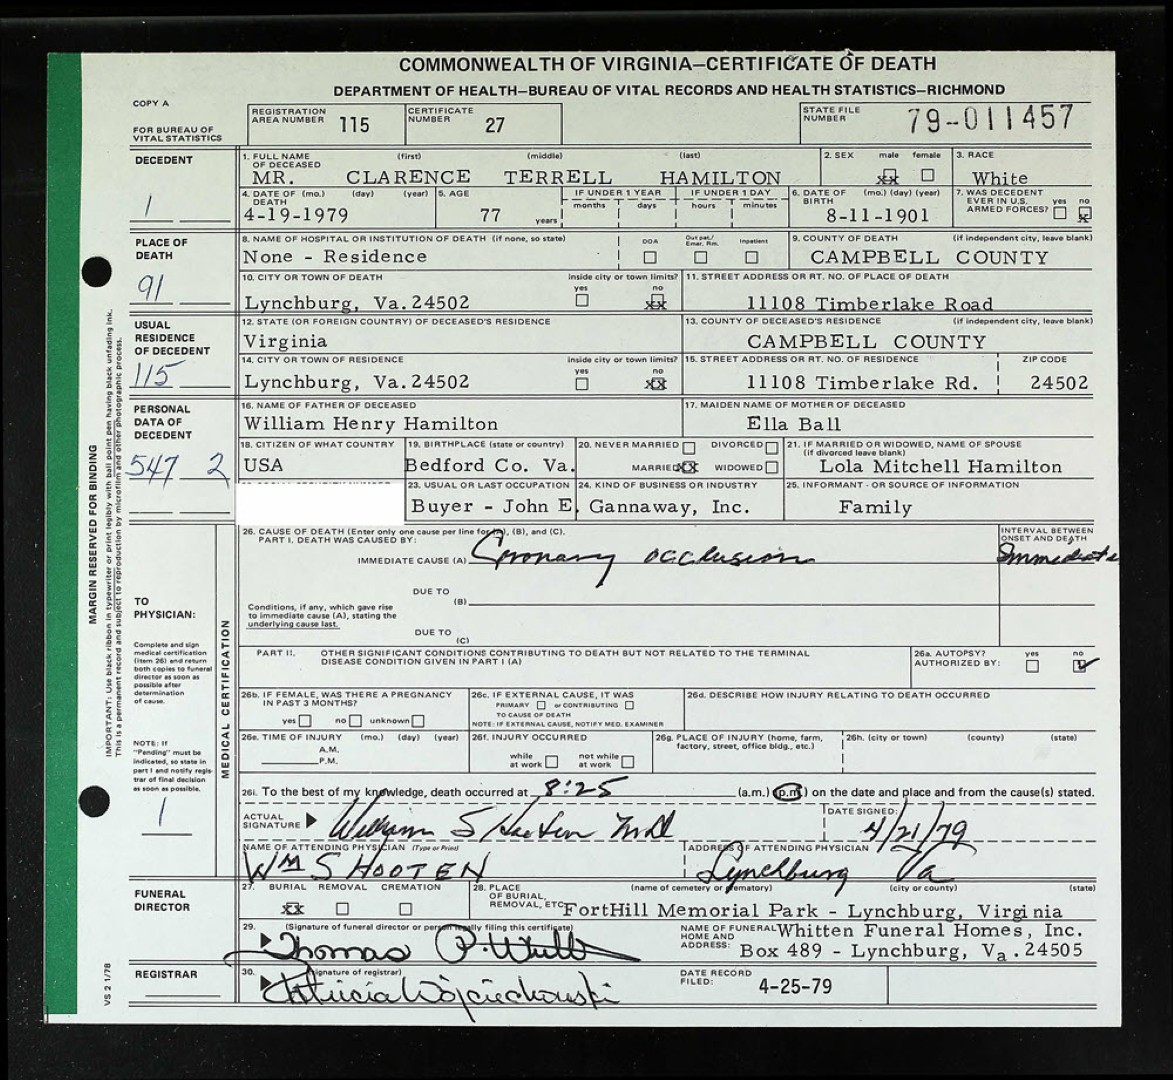 COMMONWEALTH OF VIRGINIA—CERTIFICATE OF DEATH
DEPARTMENT OF HEALTH—BUREAU OF VITAL RECORDS AND HEALTH STATISTICS—RICHMOND
COPY A
FOR BUREAU OF VITAL STATISTICS
REGISTRATION AREA NUMBER 115
CERTIFICATE NUMBER 27
STATE FILE NUMBER 79-011457
DECEDENT
1
1. FULL NAME OF DECEASED (first) (middle) (last)
MR. CLARENCE TERRELL HAMILTON
2. SEX male female
xx
3. RACE
White
4. DATE OF DEATH (mo.) (day) (year)
4-19-1979
5. AGE
77 years
IF UNDER 1 YEAR months days
IF UNDER 1 DAY hours minutes
6. DATE OF BIRTH (mo.) (day) (year)
8-11-1901
7. WAS DECEDENT EVER IN U.S. ARMED FORCES? yes no
x
PLACE OF DEATH
91
8. NAME OF HOSPITAL OR INSTITUTION OF DEATH (if none, so state)
None - Residence
DOA Out pat./Emer. Rm. Inpatient
9. COUNTY OF DEATH (if independent city, leave blank)
CAMPBELL COUNTY
10. CITY OR TOWN OF DEATH
Lynchburg, Va. 24502
inside city or town limits? yes no
xx
11. STREET ADDRESS OR RT. NO. OF PLACE OF DEATH
11108 Timberlake Road
USUAL RESIDENCE OF DECEDENT
115
12. STATE (OR FOREIGN COUNTRY) OF DECEASED'S RESIDENCE
Virginia
13. COUNTY OF DECEASED'S RESIDENCE (if independent city, leave blank)
CAMPBELL COUNTY
14. CITY OR TOWN OF RESIDENCE
Lynchburg, Va. 24502
inside city or town limits? yes no
xx
15. STREET ADDRESS OR RT. NO. OF RESIDENCE
11108 Timberlake Rd.
ZIP CODE
24502
PERSONAL DATA OF DECEDENT
547 2
16. NAME OF FATHER OF DECEASED
William Henry Hamilton
17. MAIDEN NAME OF MOTHER OF DECEASED
Ella Ball
18. CITIZEN OF WHAT COUNTRY
USA
19. BIRTHPLACE (state or country)
Bedford Co. Va.
20. NEVER MARRIED DIVORCED
MARRIED xx WIDOWED
21. IF MARRIED OR WIDOWED, NAME OF SPOUSE
(if divorced leave blank)
Lola Mitchell Hamilton
23. USUAL OR LAST OCCUPATION
Buyer - John E. Gannaway, Inc.
24. KIND OF BUSINESS OR INDUSTRY
25. INFORMANT - OR SOURCE OF INFORMATION
Family
MARGIN RESERVED FOR BINDING
IMPORTANT: Use black ribbon in typewriter or print legibly with ball point pen having black unfading ink.
This is a permanent record and subject to reproduction by microfilm and other photographic process.
TO PHYSICIAN:
Complete and sign medical certification (Item 26) and return both copies to funeral director as soon as possible after determination of cause.
NOTE: If "Pending" must be indicated, so state in part I and notify registrar of final decision as soon as possible.
1
MEDICAL CERTIFICATION
26. CAUSE OF DEATH (Enter only one cause per line for (A), (B), and (C).
PART I. DEATH WAS CAUSED BY:
IMMEDIATE CAUSE (A) Coronary occlusion
INTERVAL BETWEEN ONSET AND DEATH
Immediate
DUE TO (B)
Conditions, if any, which gave rise to immediate cause (A), stating the underlying cause last.
DUE TO (C)
PART II. OTHER SIGNIFICANT CONDITIONS CONTRIBUTING TO DEATH BUT NOT RELATED TO THE TERMINAL DISEASE CONDITION GIVEN IN PART I (A)
26a. AUTOPSY? AUTHORIZED BY: yes no
26b. IF FEMALE, WAS THERE A PREGNANCY IN PAST 3 MONTHS?
yes no unknown
26c. IF EXTERNAL CAUSE, IT WAS
PRIMARY or CONTRIBUTING
TO CAUSE OF DEATH
NOTE: IF EXTERNAL CAUSE, NOTIFY MED. EXAMINER
26d. DESCRIBE HOW INJURY RELATING TO DEATH OCCURRED
26e. TIME OF INJURY (mo.) (day) (year)
A.M.
P.M.
26f. INJURY OCCURRED
while at work not while at work
26g. PLACE OF INJURY (home, farm, factory, street, office bldg., etc.)
26h. (city or town) (county) (state)
26i. To the best of my knowledge, death occurred at 8:25 (a.m.) (p.m.) on the date and place and from the cause(s) stated.
ACTUAL SIGNATURE William S Hooten MD
DATE SIGNED:
4/21/79
NAME OF ATTENDING PHYSICIAN (Type or Print)
Wm S HOOTEN
ADDRESS OF ATTENDING PHYSICIAN
Lynchburg Va
FUNERAL DIRECTOR
27. BURIAL REMOVAL CREMATION
xx
28. PLACE OF BURIAL, REMOVAL, ETC. (name of cemetery or crematory) (city or county) (state)
FortHill Memorial Park - Lynchburg, Virginia
29. (Signature of funeral director or person legally filing this certificate)
Thomas P. Whitt
NAME OF FUNERAL HOME AND ADDRESS:
Whitten Funeral Homes, Inc.
Box 489 - Lynchburg, Va. 24505
REGISTRAR
30. (Signature of registrar)
Patricia Wojciechowski
DATE RECORD FILED:
4-25-79
VS 2 1/78